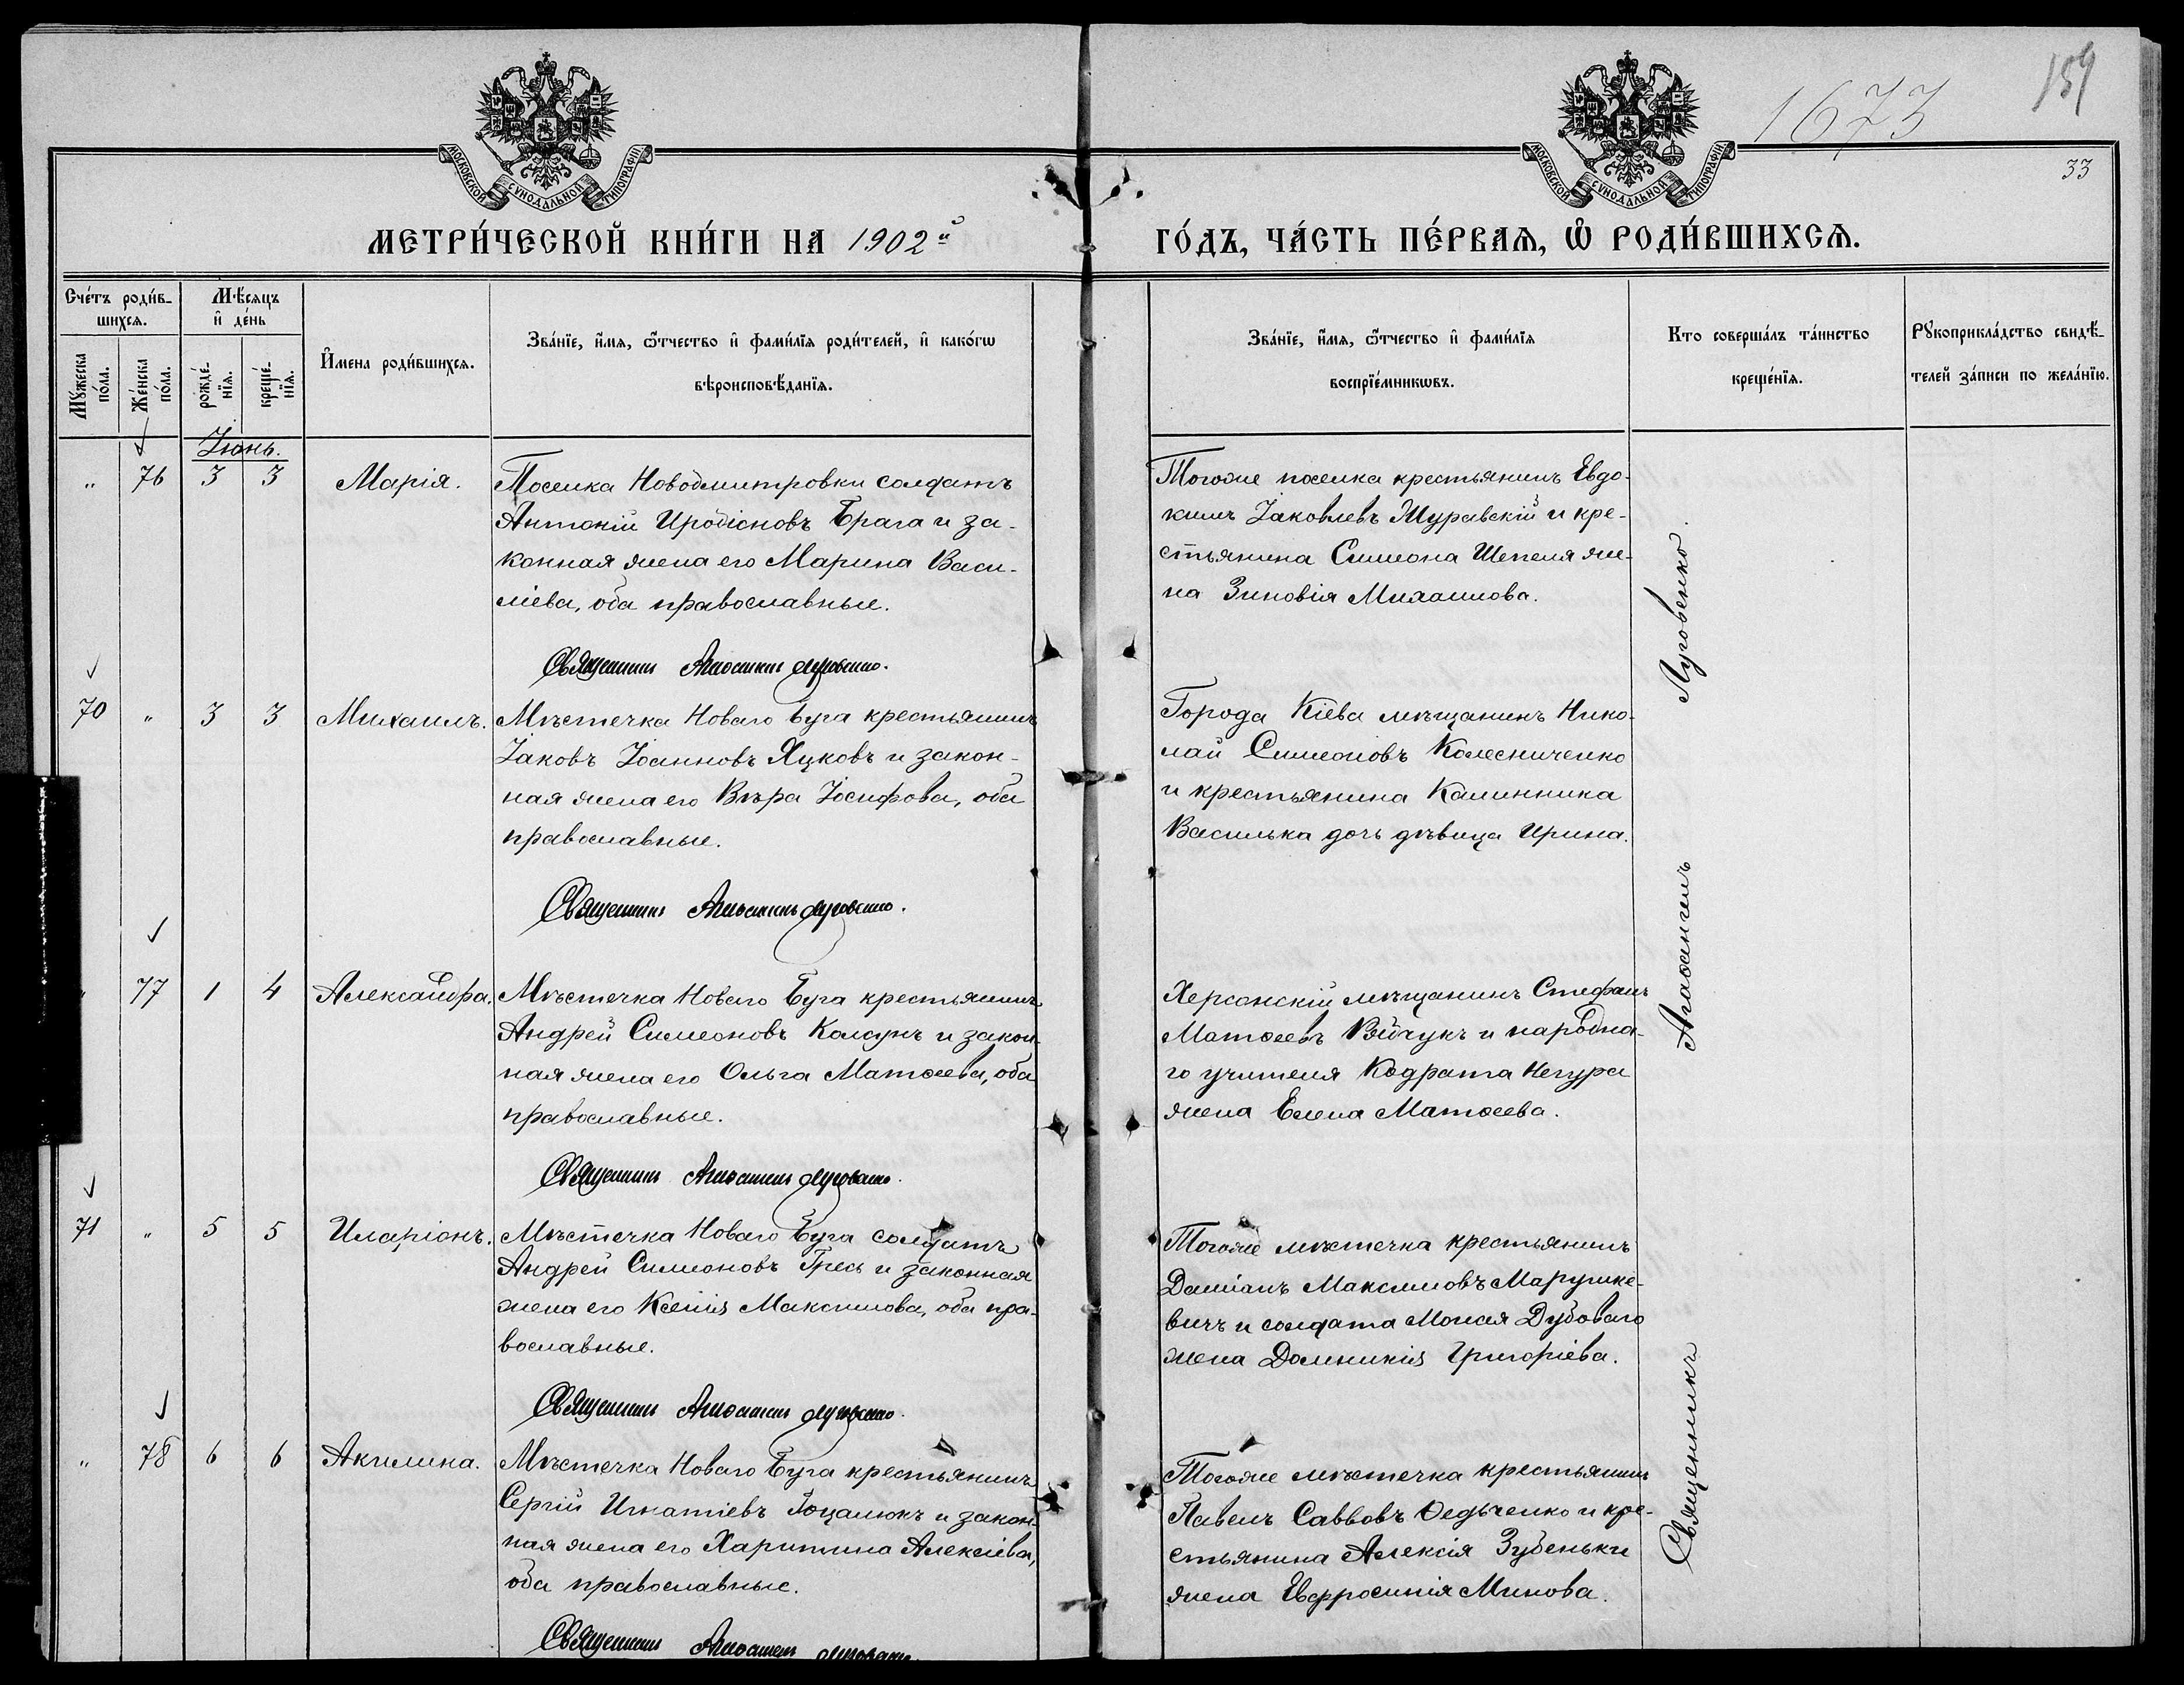 1673
159
33
МОСКОВСКОЙ СѴНОДАЛЬНОЙ ТИПОГРАФІИ
МОСКОВСКОЙ СѴНОДАЛЬНОЙ ТИПОГРАФІИ
МЕТРИ́ЧЕСКОЙ КНИ́ГИ НА 1902й
ГО́ДЪ, ЧА́СТЬ ПЕ́РВАѦ, Ѽ РОДИ́ВШИХСѦ.
Сче́тъ роди́в-
шихсѧ.
Мѣ́сяцъ
и҆ де́нь
Мꙋ́жеска по́ла.
Же́нска по́ла.
рожде́-нїѧ.
креще́-нїѧ.
И҆мена роди́вшихсѧ.
Зва́нїе, и҆́мѧ, ѻ҆́тчество и҆ фами́лїѧ роди́телей, и҆ како́гѡ
вѣроисповѣ́данїѧ.
Зва́нїе, и҆́мѧ, ѻ҆́тчество и҆ фами́лїѧ
воспрїе́мникѡвъ.
Кто соверша́лъ та́инство
креще́нїѧ.
Рꙋкоприкла́дство свидѣ́-
телей за́писи по жела́нїю.
Іюнь.
" 76 3 3 Марія.
Поселка Новодмитровки солдатъ
Антоній Иродіоновъ Брага и за-
конная жена его Марина Васи-
ліева, оба православные.
Священникъ Агаѳангелъ Луговенко.
Тогоже поселка крестьянинъ Евдо-
кимъ Іаковлевъ Журавскій и кре-
стьянина Симеона Шепеля же-
на Зиновія Михаилова.
70 " 3 3 Михаилъ.
Мѣстечка Новаго Буга крестьянинъ
Іаковъ Іоанновъ Яцковъ и закон-
ная жена его Вѣра Іосифова, оба
православные.
Священникъ Агаѳангелъ Луговенко.
Города Кіева мѣщанинъ Нико-
лай Симеоновъ Колесниченко
и крестьянина Калинника
Василька дочь дѣвица Ирина.
" 77 1 4 Александра.
Мѣстечка Новаго Буга крестьянинъ
Андрей Симеоновъ Колсунъ и закон-
ная жена его Ольга Матѳеева, оба
православные.
Священникъ Агаѳангелъ Луговенко.
Херсонскій мѣщанинъ Стефанъ
Матѳеевъ Войчукъ и народна-
го учителя Кодрата Негура
жена Елена Матѳеева.
71 " 5 5 Иларіонъ.
Мѣстечка Новаго Буга солдатъ
Андрей Симеоновъ Гресь и законная
жена его Ксенія Максимова, оба пра-
вославные.
Священникъ Агаѳангелъ Луговенко.
Тогоже мѣстечка крестьянинъ
Даміанъ Максимовъ Марушке-
вичъ и солдата Моисея Дубоваго
жена Домникія Григоріева.
" 78 6 6 Акилина.
Мѣстечка Новаго Буга крестьянинъ
Сергій Игнатіевъ Гоцалюкъ и закон-
ная жена его Харитина Алексіева,
оба православные.
Священникъ Агаѳангелъ Луговенко.
Тогоже мѣстечка крестьянинъ
Павелъ Саввовъ Ѳедьченко и кре-
стьянина Алексія Зубеньки
жена Евфросинія Минова.
Священникъ Агаѳангелъ Луговенко.